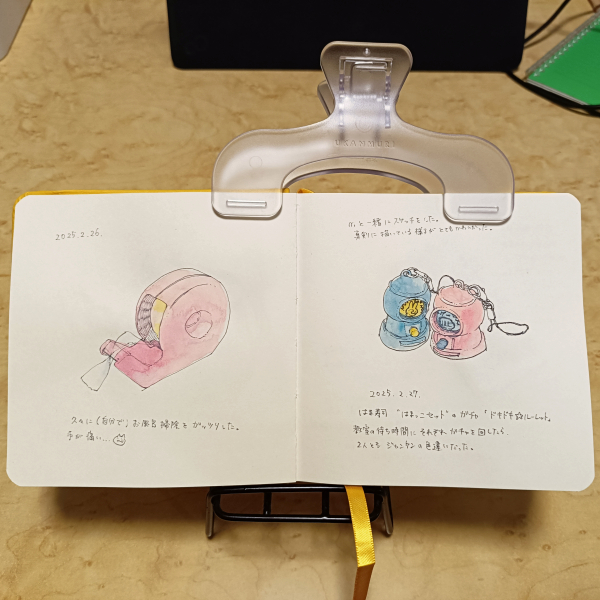 2025.2.26.
久々に(自分で)お風呂掃除をガッツリした。
手が痛い…
と一緒にスケッチをした。
真剣に描いている様子がとてもかわいかった。
2025.2.27.
はま寿司 "はまっこセット"のガチャ「ドキドキ ルーレット」
教室の待ち時間にそれぞれガチャを回したら、
2人とも ジャンケンの色違いだった。